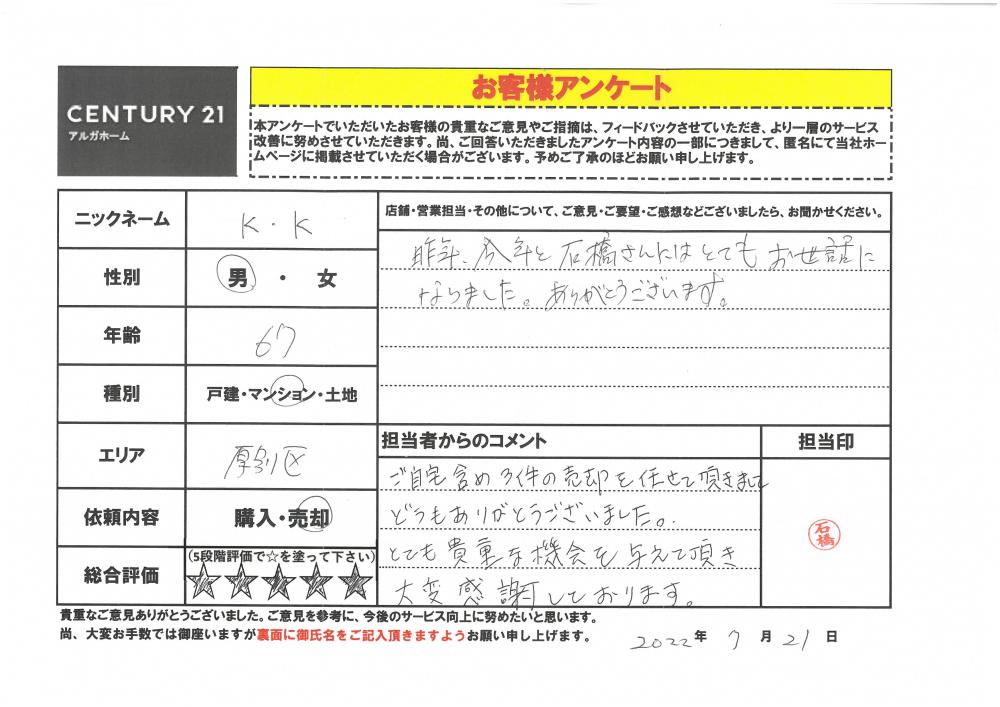 CENTURY 21
アルガホーム
お客様アンケート
本アンケートでいただいたお客様の貴重なご意見やご指摘は、フィードバックさせていただき、より一層のサービス
改善に努めさせていただきます。尚、ご回答いただきましたアンケート内容の一部につきまして、匿名にて当社ホー
ムページに掲載させていただく場合がございます。予めご了承のほどお願い申し上げます。
ニックネーム
K・K
性別
男・女
年齢
67
種別
戸建・マンション・土地
エリア
厚別区
依頼内容
購入・売却
総合評価
(5段階評価で☆を塗って下さい)
☆☆☆☆☆
店舗・営業担当・その他について、ご意見・ご要望・ご感想などございましたら、お聞かせください。
昨年、今年と石橋さんにはとてもお世話に
なりました。ありがとうございます。
担当者からのコメント
ご自宅含め3件の売却を任せて頂きまして
どうもありがとうございました。
とても貴重な機会を与えて頂き
大変感謝しております。
担当印
石橋
貴重なご意見ありがとうございました。ご意見を参考に、今後のサービス向上に努めたいと思います。
尚、大変お手数では御座いますが裏面に御氏名をご記入頂きますようお願い申し上げます。
2022年7月21日